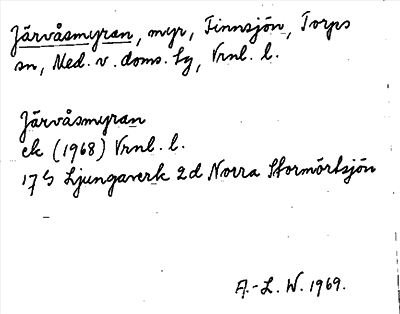 Järvåsmyran, myr, Finnsjön, Torps
sn, Med. v. doms. tg, Vrnl. l.
Järvåsmyran
ek (1968) Vrnl. l.
17 G Ljungaverk 2 d Norra Stormörtsjön
A.-L. W. 1969.